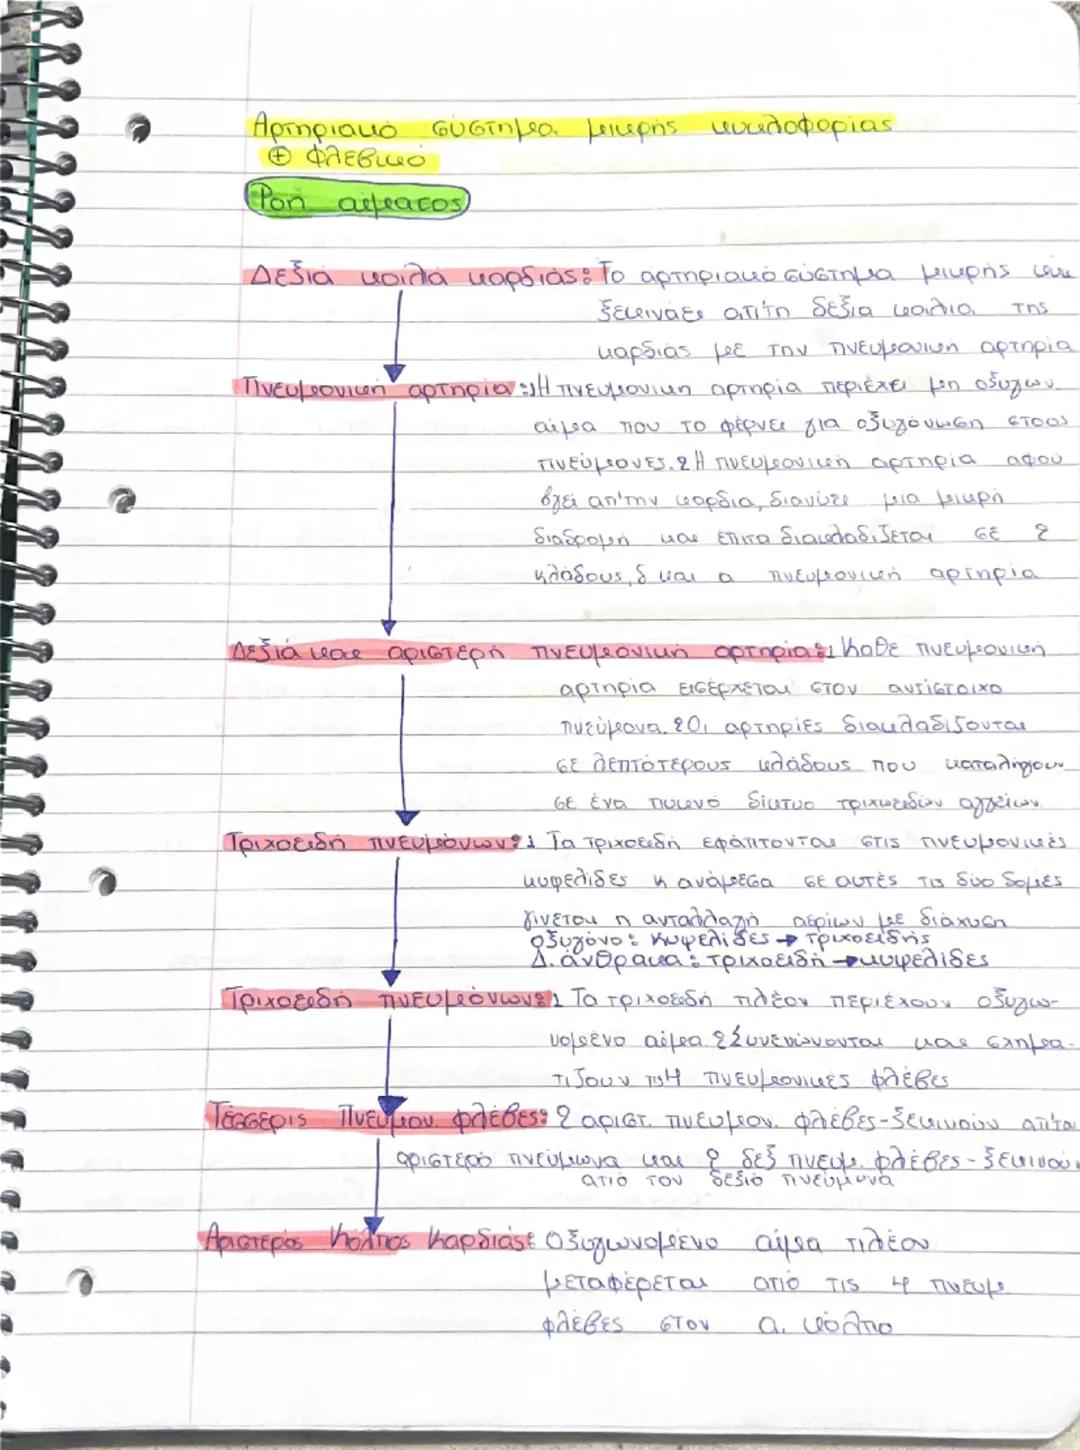 Αρτηριακό σύστημα μικρής κυκλοφορίας
⊕ Φλεβικό
Ροή αίματος
Δεξιά κοιλία καρδιάς: Το αρτηριακό σύστημα μικρής κυκ
ξεκινάει απ'τη δεξιά κοιλία της
καρδιάς με την πνευμονική αρτηρία
Πνευμονική αρτηρία: 1 Η πνευμονικη αρτηρία περιέχει μη οξυγων.
αίμα που το φέρνει για οξυγόνωση στους
πνεύμονες. 2 Η πνευμονική αρτηρία αφού
βγει απ'την καρδια, διανύει μια μικρή
διαδρομή και έπιτα διακλαδίζεται σε 2
κλάδους, δ και α πνευμονική αρτηρία
Δεξιά και αριστερή πνευμονική αρτηρία: 1 Κάθε πνευμονική
αρτηρία εισέρχεται στον αντίστοιχο
πνεύμονα. 2 Οι αρτηρίες διακλαδίζονται
σε λεπτότερους κλάδους που καταλήγουν
σε ένα πυκνό δίκτυο τριχοειδών αγγείων.
Τριχοειδή πνευμόνων: 1 Τα τριχοειδή εφάπτονται στις πνευμονικές
κυψελίδες κ ανάμεσα σε αυτές τις δύο δομές
γίνεται η ανταλλαγή αερίων με διάχυση
Οξυγόνο: Κυψελίδες → τριχοειδής
Δ. άνθρακα: τριχοειδή → κυψελίδες
Τριχοειδή πνευμόνων: 1 Τα τριχοειδή πλέον περιέχουν οξυγω-
νομένο αίμα. 2 Συνενώνονται και σχημα-
τίζουν τις 4 πνευμονικές φλέβες
Τέσσερις Πνευμον. φλέβες: 2 αριστ. πνευμον. φλέβες - ξεκινούν απ'το
αριστερό πνεύμωνα και 2 δεξ πνευμ. φλέβες - ξεκινού.
από τον δεξιό πνεύμονα
Αριστερός Κόλπος Καρδιάς: Οξυγωνομένο αίμα πλέον
μεταφέρεται από τις 4 πνευμ.
φλέβες στον α. κόλπο